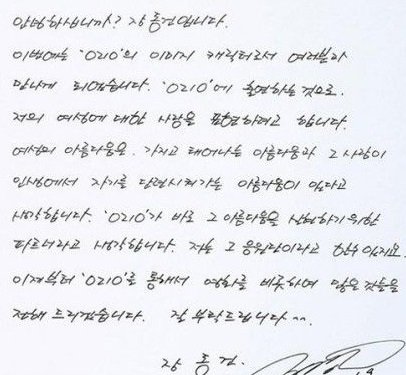 안녕하십니까? 장동건입니다.
이번에는 'OZIO'의 이미지 캐릭터로서 여러분과
만나게 되었습니다. 'OZIO'에 출연하는 것으로
저의 여성에 대한 사랑을 표현하려고 합니다.
여성의 아름다움은 가지고 태어나는 아름다움과 그 사람이
인생에서 자기를 단련시켜가는 아름다움이 있다고
생각합니다. 'OZIO'가 바로 그 아름다움을 실현하기 위한
파트너라고 생각합니다. 저는 그 응원단이라고 할수있지요.
이제부터 'OZIO'를 통해서 영화를 비롯하여 많은 것들을
전해 드리겠습니다. 잘 부탁드립니다 ^^.
장 동 건.